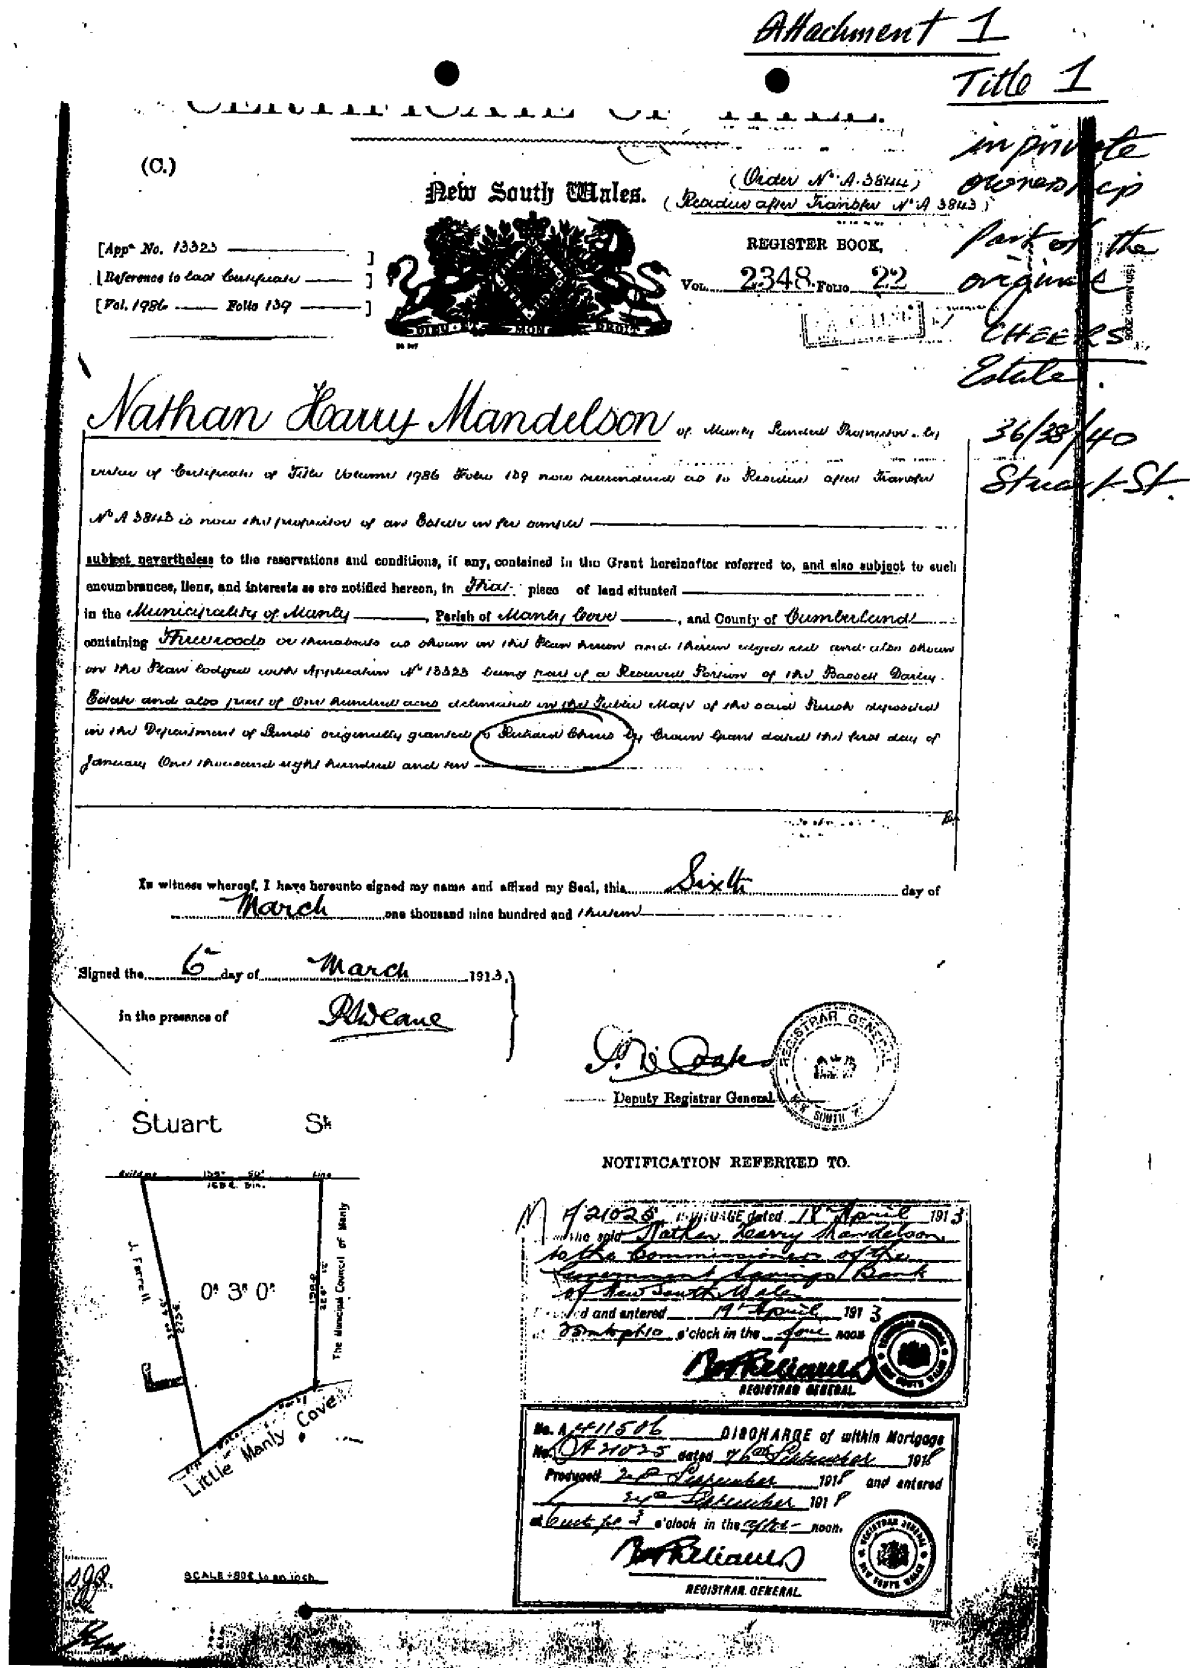 Attachment 1
Title 1
CERTIFICATE OF TITLE.
in private
ownership
Part of the
original
CHEERS
Estate.
36/38/40
Stuart St.
15th March 2006
(C.)
New South Wales.
(Order No A.3844)
(Residue after Transfer No A 3843)
[Appn No. 13323]
[Reference to last Certificate]
[Vol. 1986 Folio 139]
DIEU ET MON DROIT
REGISTER BOOK,
VOL. 2348. FOLIO 22
Nathan Harry Mandelson of Manly by
virtue of Certificate of Title Volume 1986 Folio 139 now surrendered as to Residue after Transfer
No A 3843 is now the proprietor of an Estate in fee simple
subject nevertheless to the reservations and conditions, if any, contained in the Grant hereinafter referred to, and also subject to such
encumbrances, liens, and interests as are notified hereon, in That piece of land situated
in the Municipality of Manly, Parish of Manly Cove, and County of Cumberland
containing Three roods or thereabouts as shown in the Plan hereon and therein edged red and also shown
on the Plan lodged with Application No 13323 being part of a Reserved Portion of the Bassett Darley
Estate and also part of One hundred acres delineated in the Public Map of the said Parish deposited
in the Department of Lands originally granted to Richard Cheers by Crown Grant dated the first day of
January One thousand eight hundred and ten
In witness whereof, I have hereunto signed my name and affixed my Seal, this Sixth day of
March one thousand nine hundred and thirteen
Signed the 6th day of March 1913,
in the presence of
Deputy Registrar General.
REGISTRAR GENERAL
NEW SOUTH WALES
Stuart St
Building Line
J. Farrell
0a 3r 0p
The Municipal Council of Manly
Little Manly Cove
SCALE - 80ft to an inch
NOTIFICATION REFERRED TO.
No A21025 MORTGAGE dated 18th April 1913
the said Nathan Harry Mandelson
to the Commissioners of the
Government Savings Bank
of New South Wales
and entered 19th April 1913
o'clock in the fore noon
REGISTRAR GENERAL.
REGISTRAR GENERAL
NEW SOUTH WALES
No. A 411506 DISCHARGE of within Mortgage
No. A21025 dated September 1918
Produced September 1918 and entered
September 1918
at o'clock in the after- noon.
REGISTRAR GENERAL.
REGISTRAR GENERAL
NEW SOUTH WALES